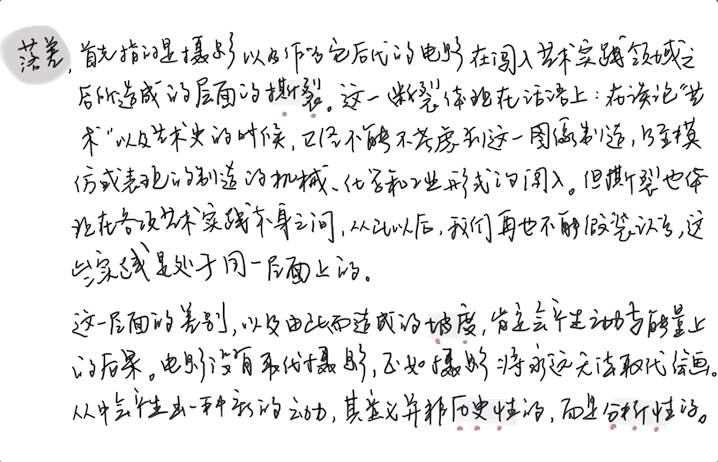 落差,首先指的是摄影以及作为它后代的电影在闯入艺术实践领域之
后所造成的层面的撕裂。这一撕裂体现在话语上:在谈论“艺
术”以及艺术史的时候,已经不能不考虑到这一图像制造,乃至模
仿或表现的制造的机械、化学和工业形式的闯入。但撕裂也体
现在各项艺术实践本身之间,从此以后,我们再也不能假装认为,这
些实践是处于同一层面上的。
这一层面的差别,以及由此而造成的坡度,肯定会产生动力与能量上
的后果。电影没有取代摄影,正如摄影将永远无法取代绘画。
从中会产生出一种新的动力,其意义并非历史性的,而是分析性的。